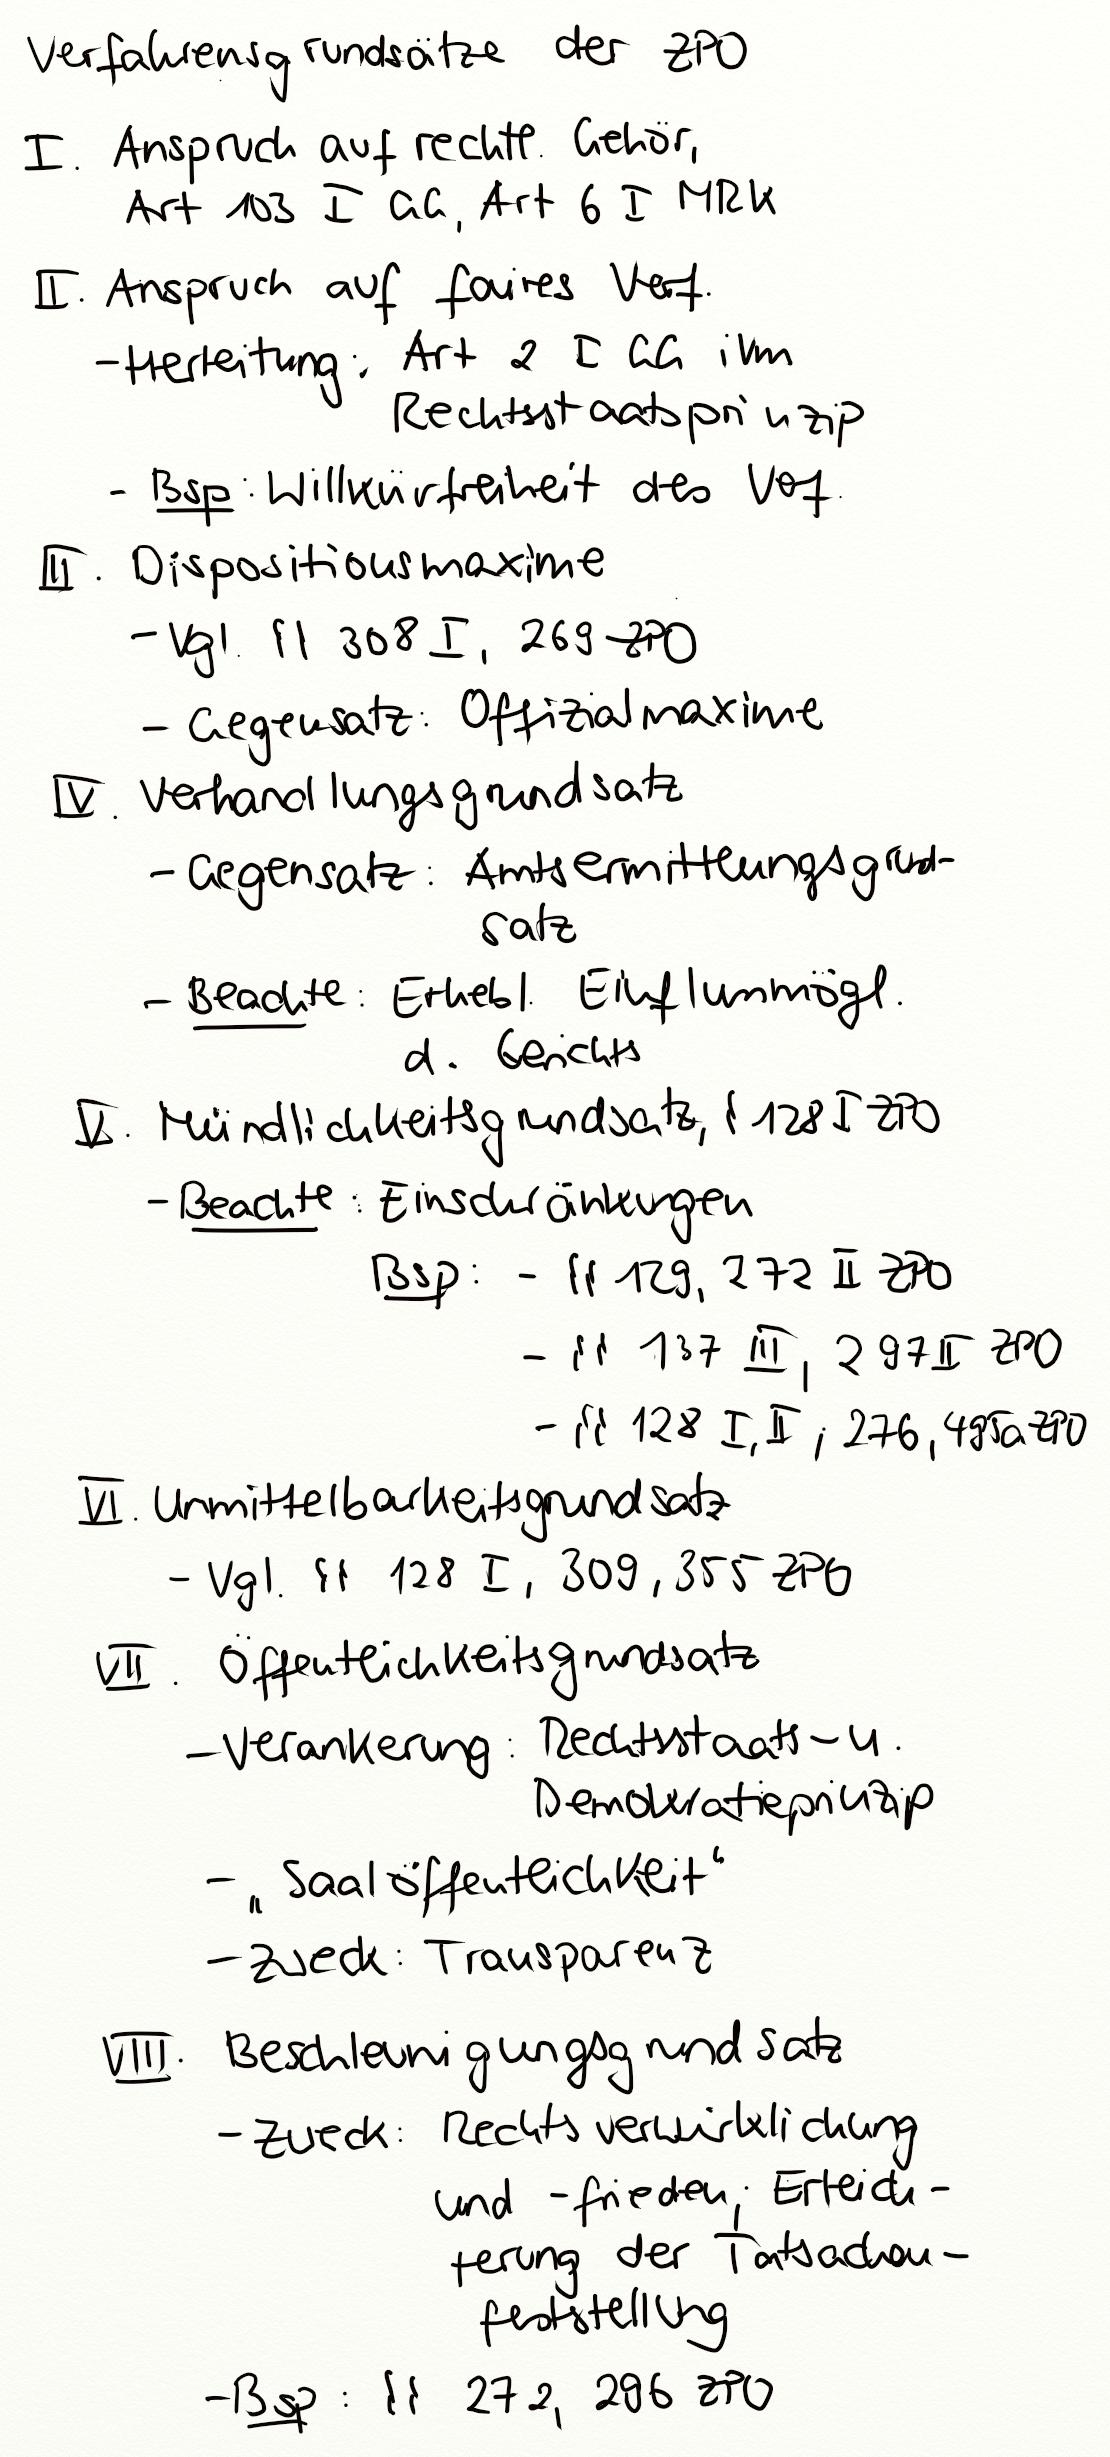 Verfahrensgrundsätze der ZPO
I. Anspruch auf rechtl. Gehör,
Art 103 I GG, Art 6 I MRK
II. Anspruch auf faires Verf.
- Herleitung: Art 2 I GG iVm
Rechtsstaatsprinzip
- Bsp: Willkürfreiheit des Verf.
III. Dispositionsmaxime
- Vgl. §§ 308 I, 269 ZPO
- Gegensatz: Offizialmaxime
IV. Verhandlungsgrundsatz
- Gegensatz: Amtsermittlungsgrund-
satz
- Beachte: Erhebl. Einflussmögl.
d. Gerichts
V. Mündlichkeitsgrundsatz, § 128 I ZPO
- Beachte: Einschränkungen
Bsp: - §§ 129, 272 II ZPO
- §§ 137 III, 297 II ZPO
- §§ 128 I, II, 276, 495a ZPO
VI. Unmittelbarkeitsgrundsatz
- Vgl. §§ 128 I, 309, 355 ZPO
VII. Öffentlichkeitsgrundsatz
- Verankerung: Rechtsstaats- u.
Demokratieprinzip
- „Saalöffentlichkeit“
- Zweck: Transparenz
VIII. Beschleunigungsgrundsatz
- Zweck: Rechtsverwirklichung
und -frieden; Erleich-
terung der Tatsachen-
feststellung
- Bsp: §§ 272, 296 ZPO